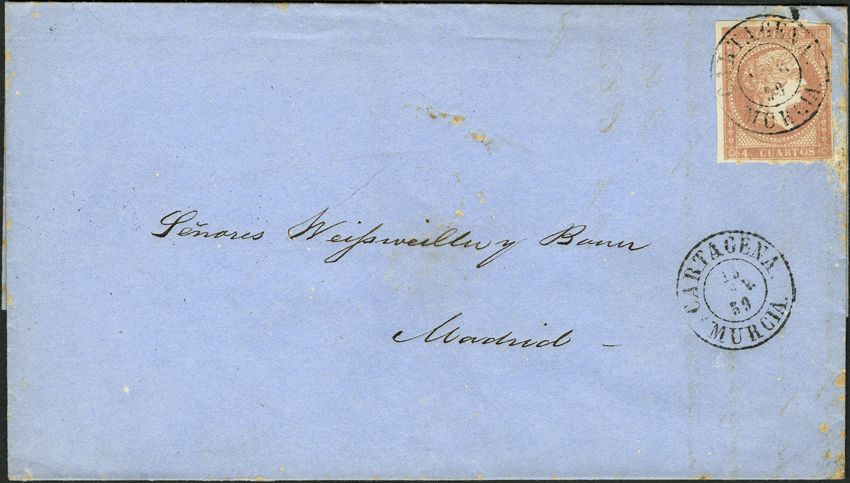 CARTAGENA
59
MURCIA
4 CUARTOS
Señores Weiſsweiller y Bauer
CARTAGENA
59
MURCIA
Madrid